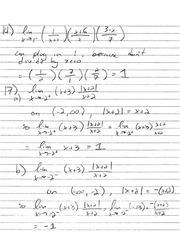 14) lim x→1⁻ (1/(x+1)) ((x+6)/x) ((3-x)/7)
can plug in 1, because don't
divide by zero
(1/2) (7/1) (2/7) = 1
17)
a) lim x→-2⁺ (x+3) |x+2|/(x+2)
on (-2,∞), |x+2| = x+2
so lim x→-2⁺ (x+3) |x+2|/(x+2) = lim x→-2⁺ (x+3) (x+2)/(x+2)
= lim x→-2⁺ x+3 = 1
b) lim x→-2⁻ (x+3) |x+2|/(x+2)
on (-∞,-2), |x+2| = -(x+2)
so lim x→-2⁻ (x+3) |x+2|/(x+2) = lim x→-2⁻ (x+3) · -(x+2)/(x+2)
= -1